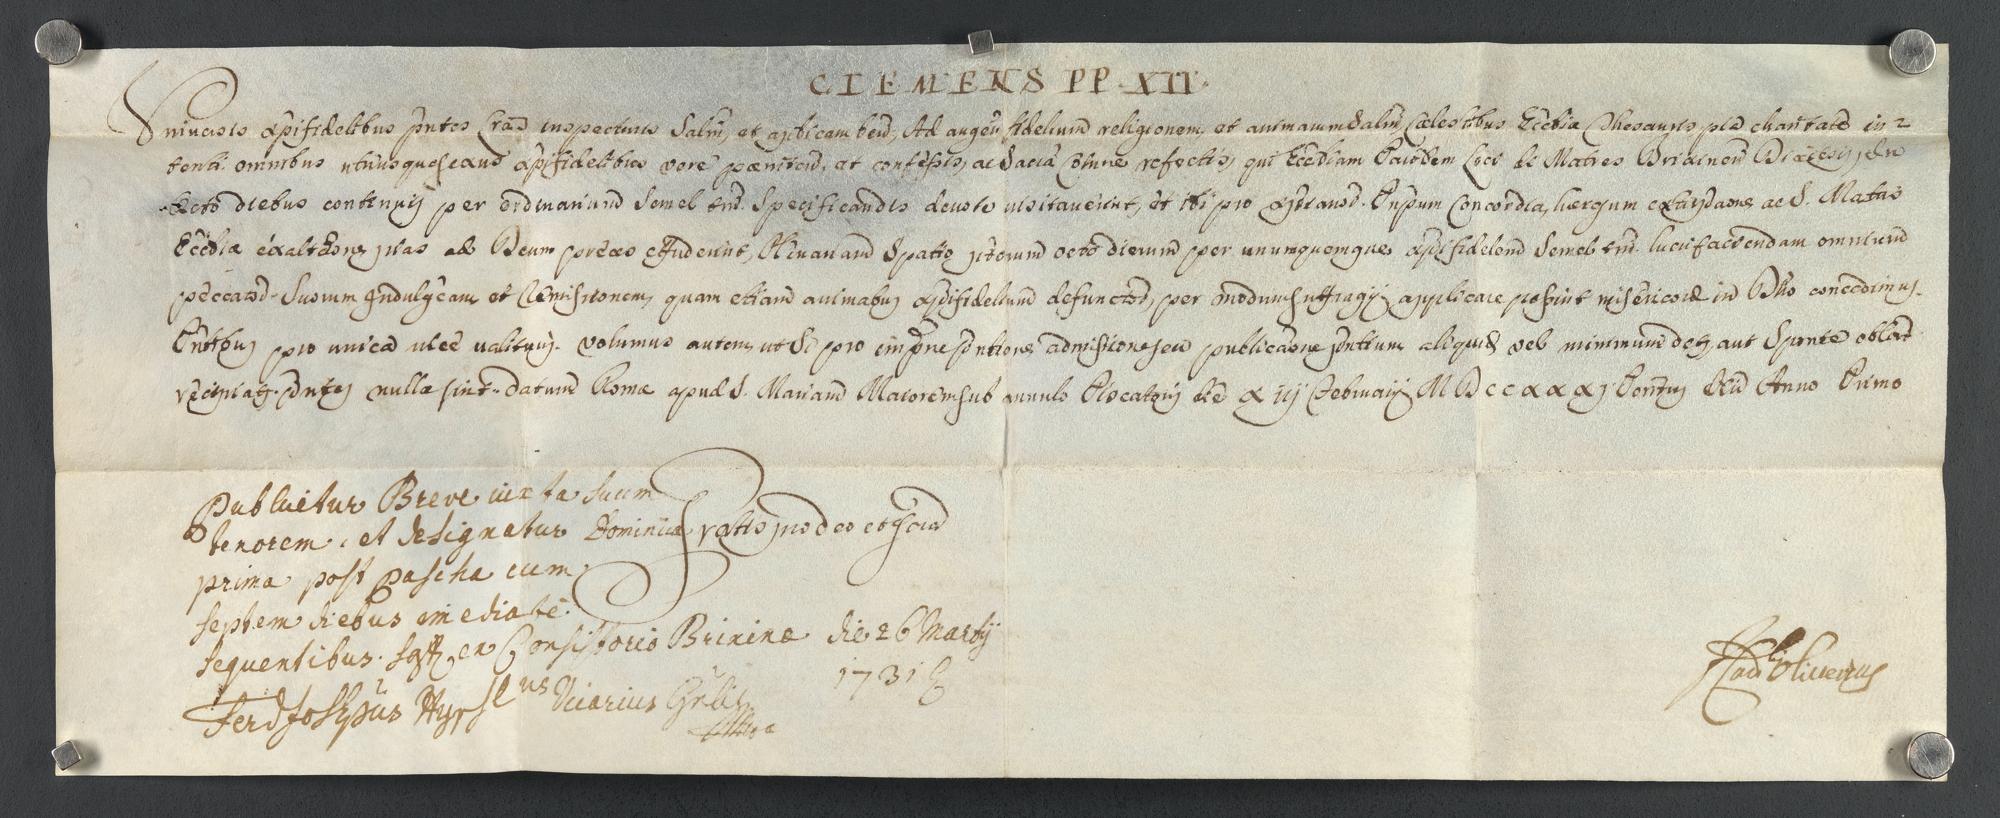 CLEMENS PP. XII.
Universis Xpifidelibus pntes Lras inspecturis Salm, et aplicam ben, Ad augen fidelium religionem et animarum Salm Coelestibus Eccliae Thesauris pia charitate in
tenti omnibus utriusque sexus Xpifidelibus vere poeniten, et confessis, ac Sacra Coione refectis, qui Eccliam Loci de Matrei
Octo diebus continuis per ordinarium Semel tm. Specificandis devote visitaverint, et ibi pro Xpianor. Prpum Concordia, haeresum extirpaone ac S. Matris
Eccliae exaltaone pias ad Deum preces effuderint, Plenariam Spatio pctorum octo dierum per unumquemque Xpifidelem Semel tm. lucrifaciendam omnium
peccator. Suorum Indulgeam et Remissionem, quam etiam animabus Xpifidelium defunctor, per modum suffragij applicare possint misericord in Dno concedimus.
Pntibus pro unica vice valituris. volumus autem ut Si pro impne pntione admissione seu publicaone pntium aliquid vel minimum det, aut Sponte oblat
recipiatur pntes nullae sint. datum Romae apud S. Mariam Maiorem sub annulo Piscatoris die X iij Februarij M D C C X X X j Pontus Anno Primo
Publicetur Breve iuxta suum
tenorem, et designatur Dominica
gratis pro deo et
prima post Pascha cum
septem diebus imediatè
sequentibus. ex Consistorio Brixinae die 26 Martij
1731
Ferd Vicarius Gralis
F. Card. Oliverius